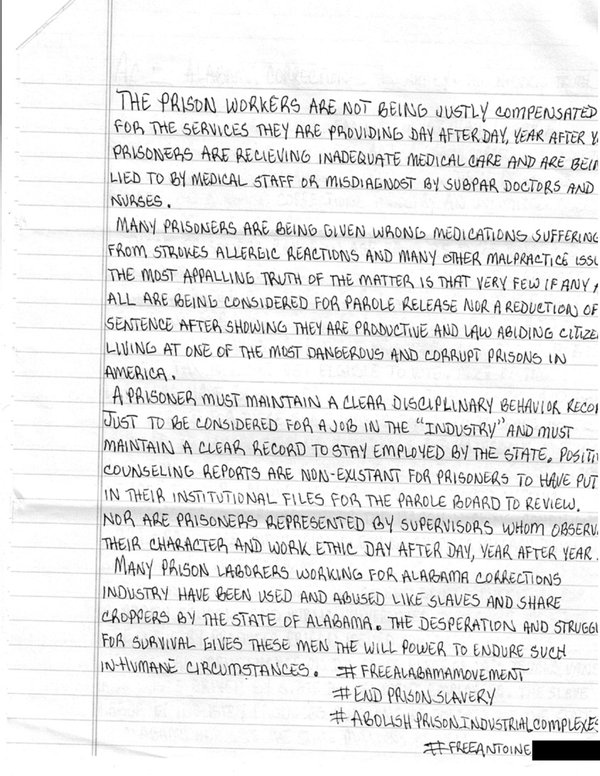 THE PRISON WORKERS ARE NOT BEING JUSTLY COMPENSATED
FOR THE SERVICES THEY ARE PROVIDING DAY AFTER DAY, YEAR AFTER Y
PRISONERS ARE RECIEVING INADEQUATE MEDICAL CARE AND ARE BEIN
LIED TO BY MEDICAL STAFF OR MISDIAGNOST BY SUBPAR DOCTORS AND
NURSES.
MANY PRISONERS ARE BEING GIVEN WRONG MEDICATIONS SUFFERING
FROM STROKES ALLERGIC REACTIONS AND MANY OTHER MALPRACTICE ISSU
THE MOST APPALLING TRUTH OF THE MATTER IS THAT VERY FEW IF ANY A
ALL ARE BEING CONSIDERED FOR PAROLE RELEASE NOR A REDUCTION OF
SENTENCE AFTER SHOWING THEY ARE PRODUCTIVE AND LAW ABIDING CITIZE
LIVING AT ONE OF THE MOST DANGEROUS AND CORRUPT PRISONS IN
AMERICA.
A PRISONER MUST MAINTAIN A CLEAR DISCIPLINARY BEHAVIOR RECOR
JUST TO BE CONSIDERED FOR A JOB IN THE "INDUSTRY" AND MUST
MAINTAIN A CLEAR RECORD TO STAY EMPLOYED BY THE STATE. POSITI
COUNSELING REPORTS ARE NON-EXISTANT FOR PRISONERS TO HAVE PUT
IN THEIR INSTITUTIONAL FILES FOR THE PAROLE BOARD TO REVIEW.
NOR ARE PRISONERS REPRESENTED BY SUPERVISORS WHOM OBSERV
THEIR CHARACTER AND WORK ETHIC DAY AFTER DAY, YEAR AFTER YEAR.
MANY PRISON LABORERS WORKING FOR ALABAMA CORRECTIONS
INDUSTRY HAVE BEEN USED AND ABUSED LIKE SLAVES AND SHARE
CROPPERS BY THE STATE OF ALABAMA. THE DESPERATION AND STRUGGL
FOR SURVIVAL GIVES THESE MEN THE WILL POWER TO ENDURE SUCH
IN-HUMANE CIRCUMSTANCES. #FREEALABAMAMOVEMENT
#END PRISON SLAVERY
#ABOLISH PRISON INDUSTRIAL COMPLEXES
#FREEANTOINE